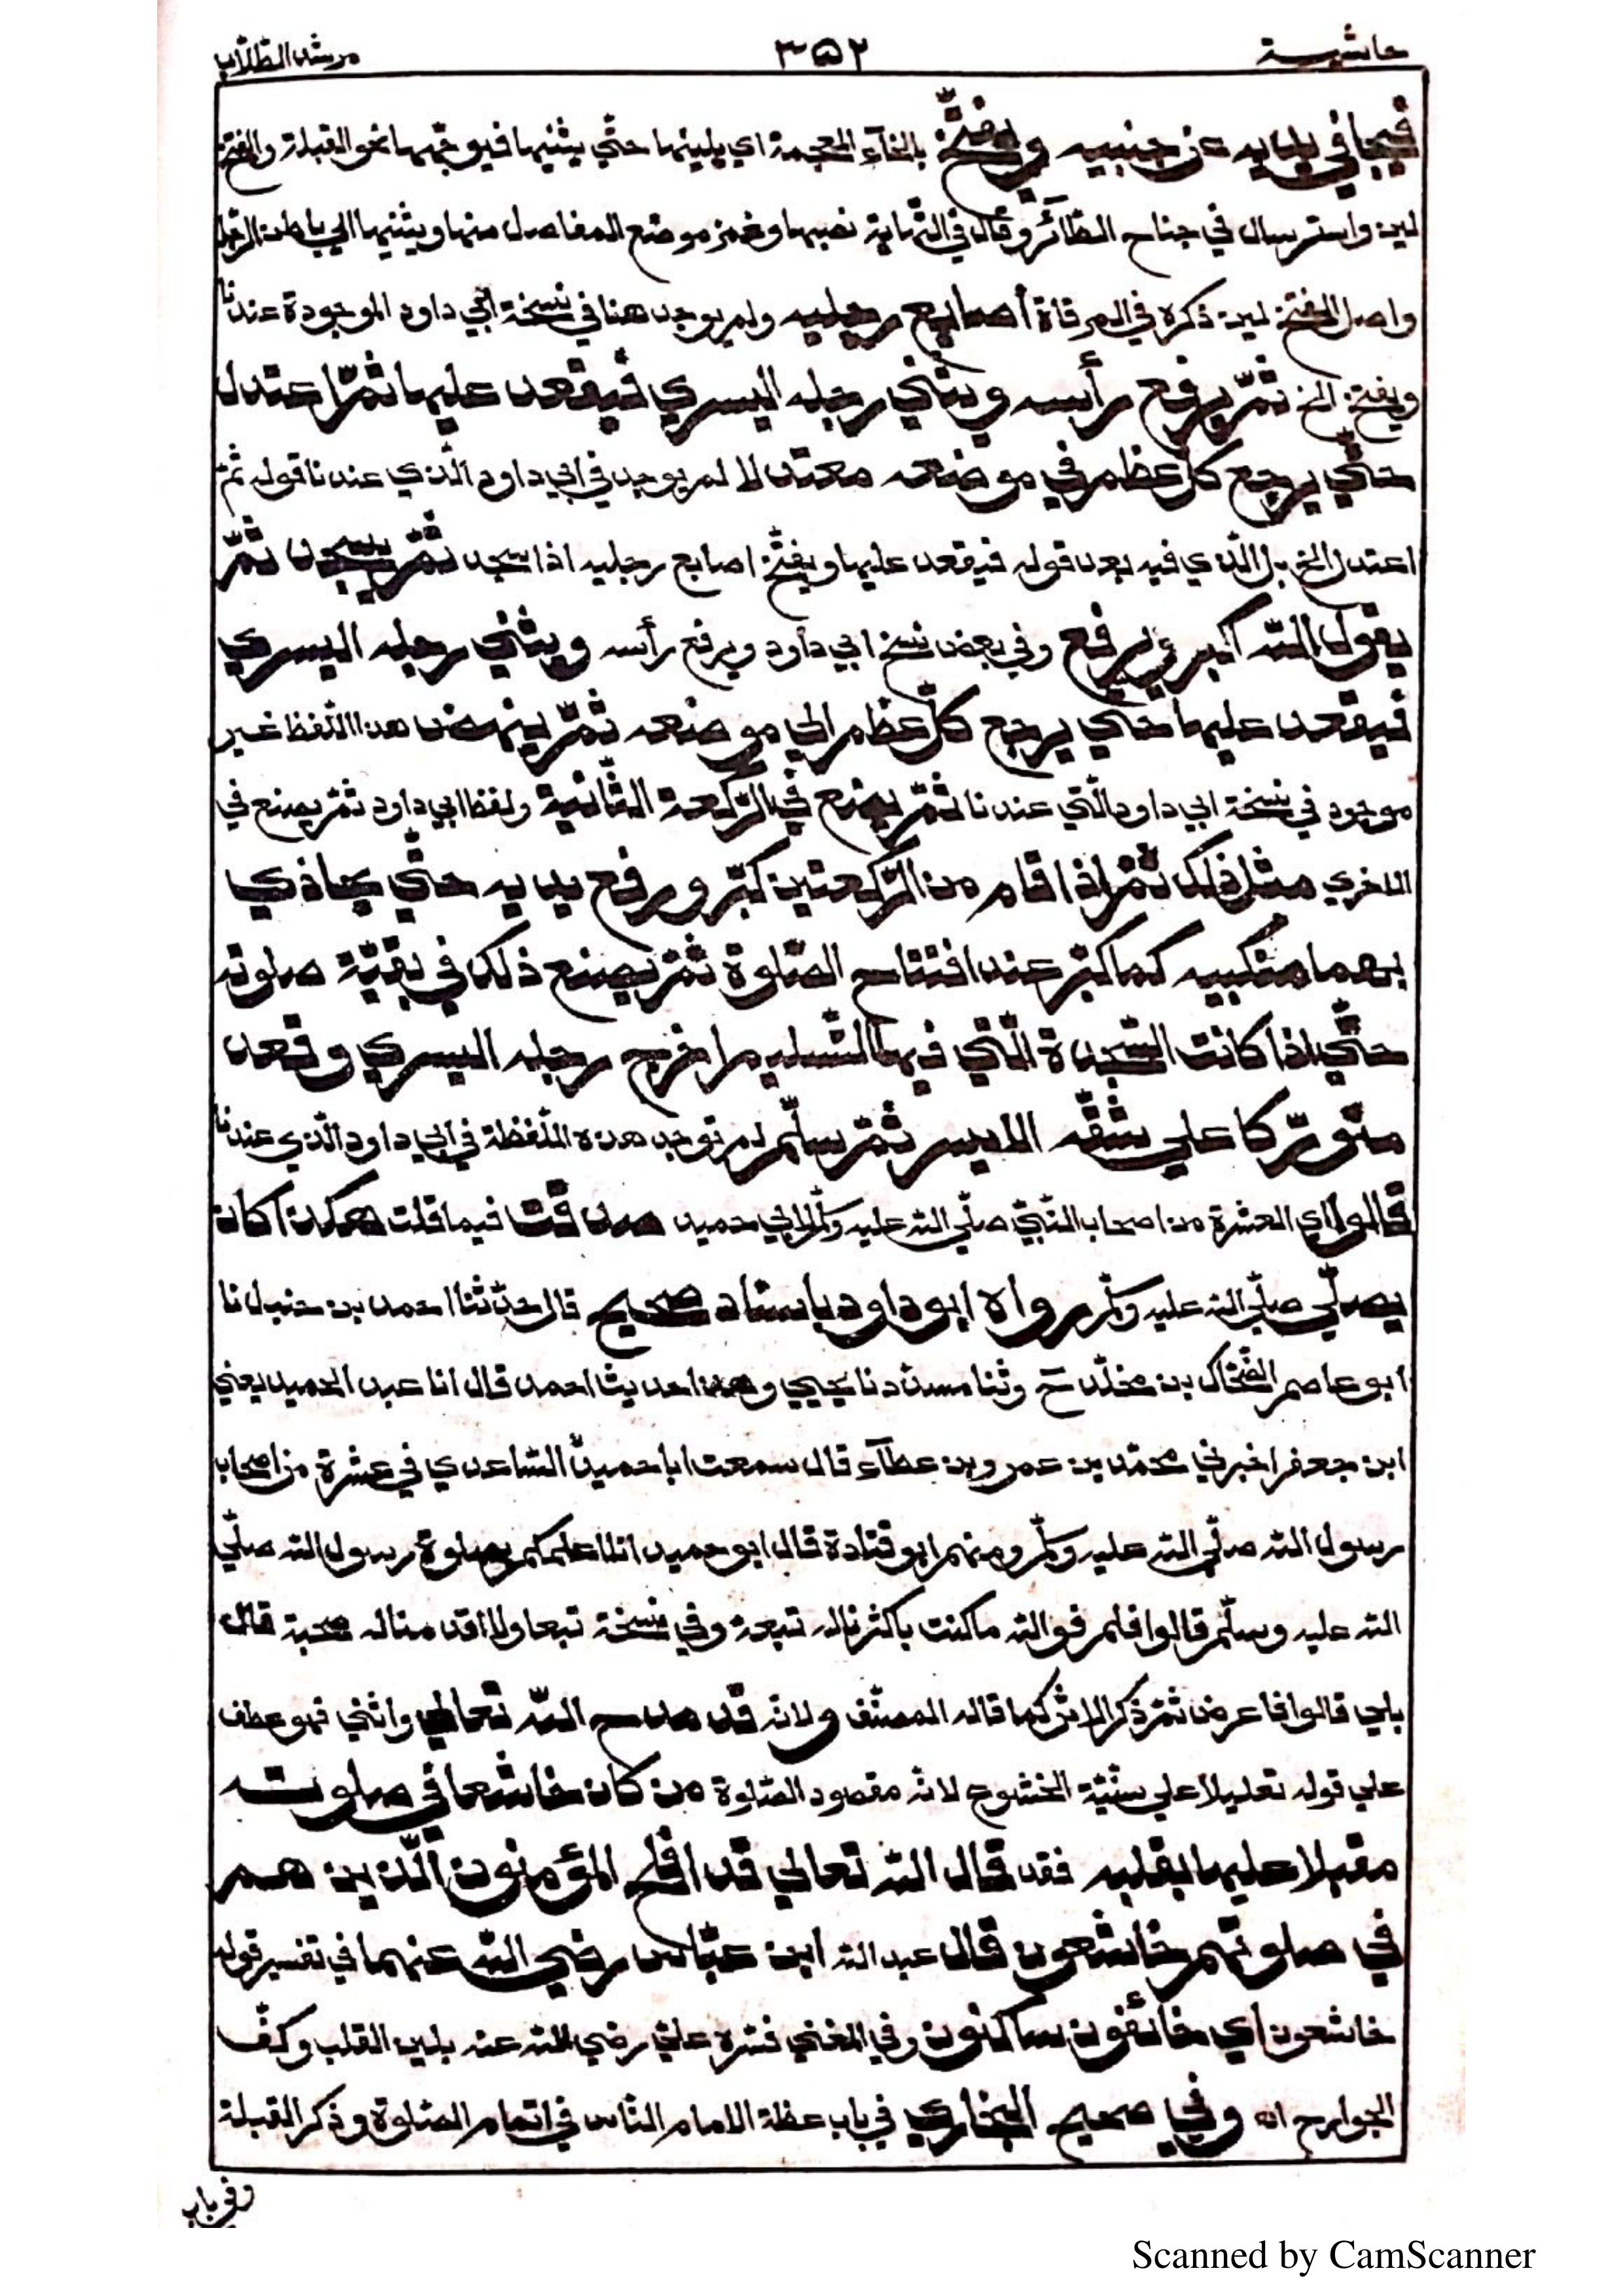 حاشية ٣٥٢ مرشد الطلاب
فيجافي يديه عن جنبيه ويفتخ بالخآء المعجمة اي يلينها حتّي يثنيها فيوجّهها نحو القبلة والفتخ
لين واسترسال في جناح الطّائر وقال في النّهاية نصبها وغمز موضع المفاصل منها ويثنيها الي باطن الرّجل
واصل الفتخ لين ذكره في المرقاة أصابع رجليه ولم يوجد هنا في نسخة ابي داود الموجودة عندنا
ويفتخ الخ ثمّ يرفع رأسه ويثني رجله اليسري فيقعد عليها ثمّ اعتدل
حتّي يرجع كلّ عظم في موضعه معتدلا لم يوجد في ابي داود الّذي عندنا قوله ثمّ
اعتدل الخ بل الّذي فيه بعد قوله فيقعد عليها ويفتخ اصابع رجليه اذا سجد ثمّ يسجد ثمّ
يقول اللّه اكبر ويرفع وفي بعض نسخ ابي داود ويرفع رأسه ويثني رجله اليسري
فيقعد عليها حتّي يرجع كلّ عظم الي موضعه ثمّ ينهض هذا اللّفظ غير
موجود في نسخة ابي داود الّتي عندنا ثمّ يصنع في الرّكعة الثّانية ولفظ ابي داود ثمّ يصنع في
الاخري مثل ذلك ثمّ اذا قام من الرّكعتين كبّر ورفع يديه حتّي يحاذي
بهما منكبيه كما كبّر عند افتتاح الصّلوة ثمّ يصنع ذلك في بقيّة صلوته
حتّي اذا كانت السّجدة الّتي فيها التّسليم اخرج رجله اليسري وقعد
متورّكا علي شقّه الايسر ثمّ سلّم لم توجد هذه اللّفظة في ابي داود الّذي عندنا
قالوا اي العشرة من اصحاب النّبيّ صلّي اللّه عليه وسلّم لابي حميد صدقت فيما قلت هكذا كان
يصلّي صلّي اللّه عليه وسلّم رواه ابو داود باسناد صحيح قال حدّثنا احمد بن حنبل نا
ابو عاصم الضّحّاك بن مخلّد ح وثنا مسدّد نا يحيي وهذا حديث احمد قال انا عبد الحميد يعني
ابن جعفر اخبرني محمّد بن عمرو بن عطآء قال سمعت ابا حميد السّاعدي في عشرة من اصحاب
رسول اللّه صلّي اللّه عليه وسلّم ومنهم ابو قتادة قال ابو حميد انا اعلمكم بصلوة رسول اللّه صلّي
اللّه عليه وسلّم قالوا فلم فواللّه ما كنت باكثرنا له تبعة وفي نسخة تبعا ولا اقدمنا له صحبة قال
بلي قالوا فاعرض ثمّ ذكر الاثر كما قاله المصنّف ولانّه قد مدح اللّه تعالي واثني فهو عطف
علي قوله تعليلا علي سنّيّة الخشوع لانّه مقصود الصّلوة من كان خاشعا في صلوته
مقبلا عليها بقلبه فقد قال اللّه تعالي قد افلح المؤمنون الّذين هم
في صلوتهم خاشعون قال عبد اللّه ابن عبّاس رضي اللّه عنهما في تفسير قوله
خاشعون اي خائفون ساكنون وفي المغني فسّره عليّ رضي اللّه عنه بلين القلب وكفّ
الجوارح اه وفي صحيح البخاري في باب عظة الامام النّاس في اتمام الصّلوة وذكر القبلة
وفي باب
Scanned by CamScanner